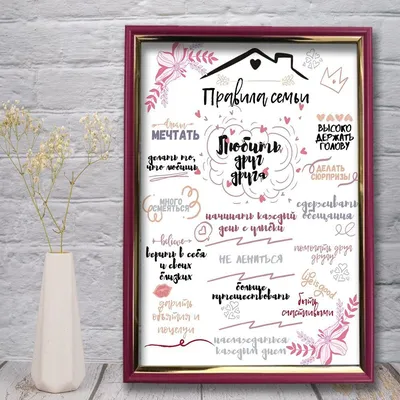 Правила семьи
МЕЧТАТЬ
Любить
друг
друга
ВЫСОКО
ДЕРЖАТЬ
ГОЛОВУ
делать то,
что любишь
ДЕЛАТЬ
СЮРПРИЗЫ
МНОГО
СМЕЯТЬСЯ
сдерживать
обещания
начинать каждый
день с улыбки
believe
верить в себя
и своих
близких
НЕ ЛЕНИТЬСЯ
помогать друг
другу
Life is good
больше
путешествовать
дарить
объятия и
поцелуи
быть
счастливыми
наслаждаться
каждым днем